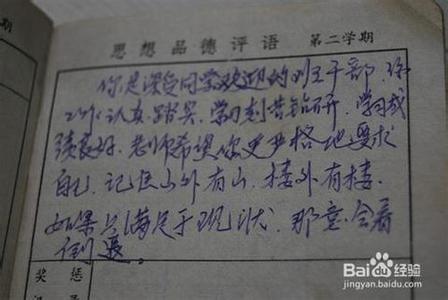 思想品德评语 第二学期
你是深受同学欢迎的班干部,你
工作认真踏实,学习刻苦钻研,学习成
绩良好。老师希望你更严格地要求
自己,记住山外有山,楼外有楼。
如果只满足于现状,那意会着
倒退。
奖惩
Baidu经验
jingyan.baidu.com